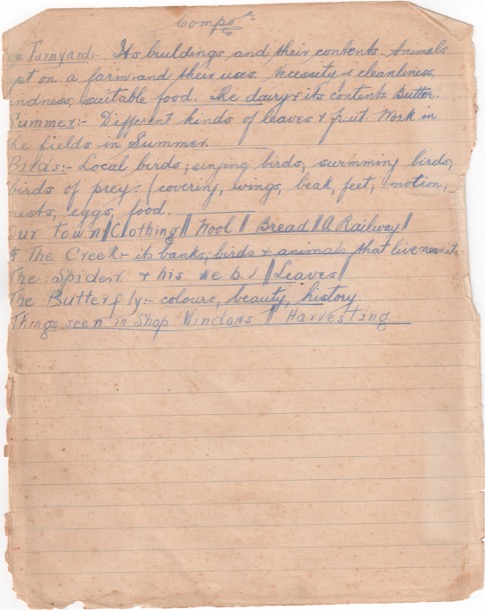 Compo n.
e Farmyard:- Its buildings and their contents. Animals
pt on a farm and their uses. Necessity of cleanliness,
ndness, suitable food. The dairy & its contents Butter.
Summer:- Different kinds of leaves & fruit. Work in
he fields in Summer.
Birds:- Local birds; singing birds; swimming birds;
birds of prey. (covering, wings, beak, feet, motion;
nests, eggs, food.
Our Town || Clothing || Wool || Bread || A Railway ||
The Creek - its banks; birds & animals that live near it.
The Spider & his web. || Leaves ||
The Butterfly:- colours, beauty, history.
Things seen in Shop Windows || Harvesting